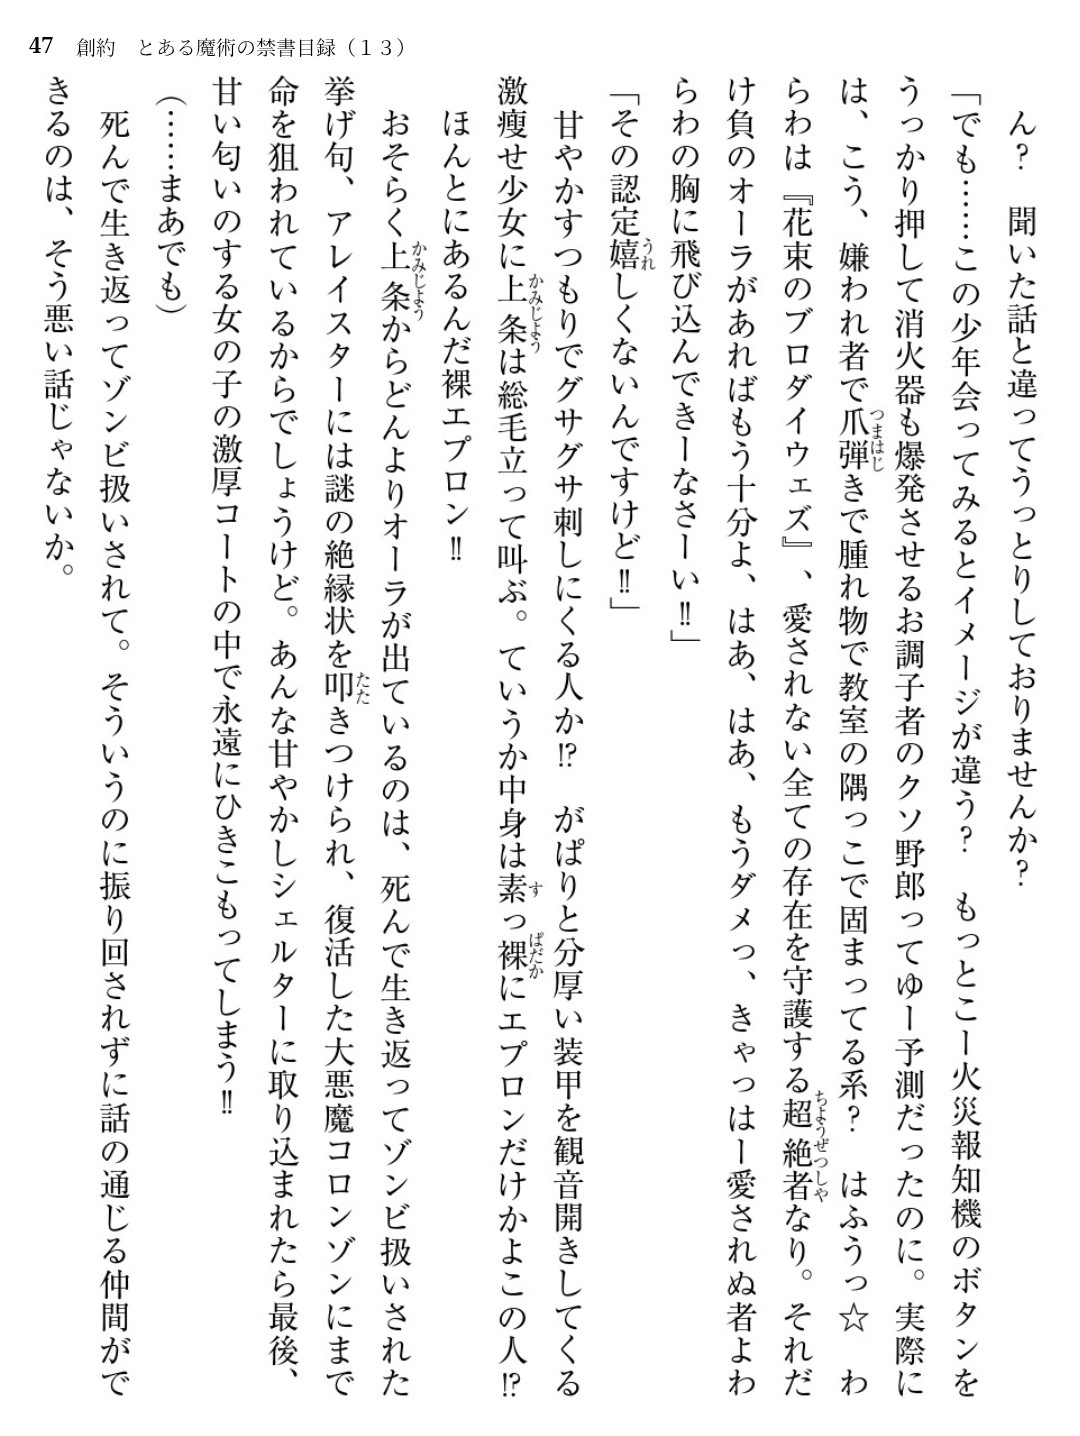 47　創約　とある魔術の禁書目録（１３）
　ん？　聞いた話と違ってうっとりしておりませんか？
「でも……この少年会ってみるとイメージが違う？　もっとこー火災報知機のボタンを
うっかり押して消火器も爆発させるお調子者のクソ野郎ってゆー予測だったのに。実際に
は、こう、嫌われ者で爪弾きで腫れ物で教室の隅っこで固まってる系？　はふうっ☆　わ
らわは『花束のブロダイウェズ』、愛されない全ての存在を守護する超絶者なり。それだ
け負のオーラがあればもう十分よ、はあ、はあ、もうダメっ、きゃっはー愛されぬ者よわ
らわの胸に飛び込んできーなさーい‼」
「その認定嬉しくないんですけど‼」
　甘やかすつもりでグサグサ刺しにくる人か⁉　がぱりと分厚い装甲を観音開きしてくる
激痩せ少女に上条は総毛立って叫ぶ。ていうか中身は素っ裸にエプロンだけかよこの人⁉
　ほんとにあるんだ裸エプロン‼
　おそらく上条からどんよりオーラが出ているのは、死んで生き返ってゾンビ扱いされた
挙げ句、アレイスターには謎の絶縁状を叩きつけられ、復活した大悪魔コロンゾンにまで
命を狙われているからでしょうけど。あんな甘やかしシェルターに取り込まれたら最後、
甘い匂いのする女の子の激厚コートの中で永遠にひきこもってしまう‼
（……まあでも）
　死んで生き返ってゾンビ扱いされて。そういうのに振り回されずに話の通じる仲間がで
きるのは、そう悪い話じゃないか。